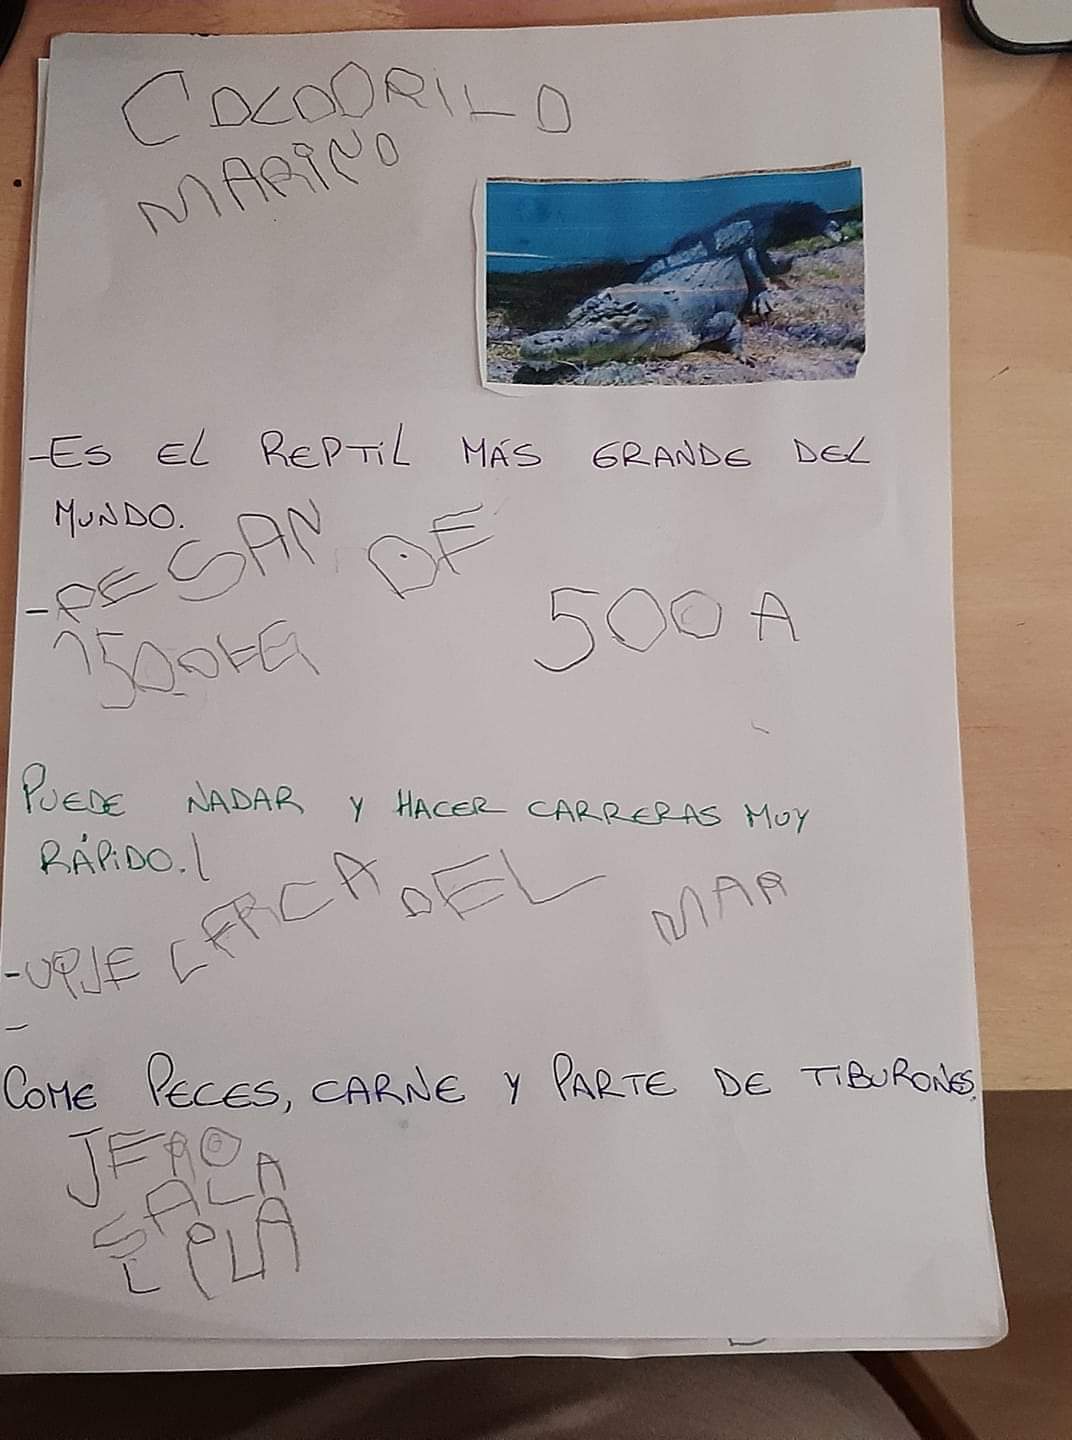 COCODRILO
MARINO
-ES EL REPTIL MÁS GRANDE DEL
MUNDO.
-PESAN DE
500 A
1500KG
PUEDE NADAR Y HACER CARRERAS MUY
RÁPIDO.
CERCA DEL MAR
-
COME PECES, CARNE Y PARTE DE TIBURONES.
SALA